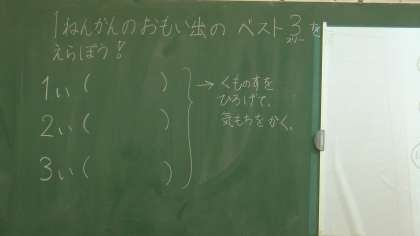 1ねんかんのおもい出の ベスト3を
スリー
えらぼう!
1い(　　　)
2い(　　　)
3い(　　　)
→くものすを
ひろげて、
気もちをかく。